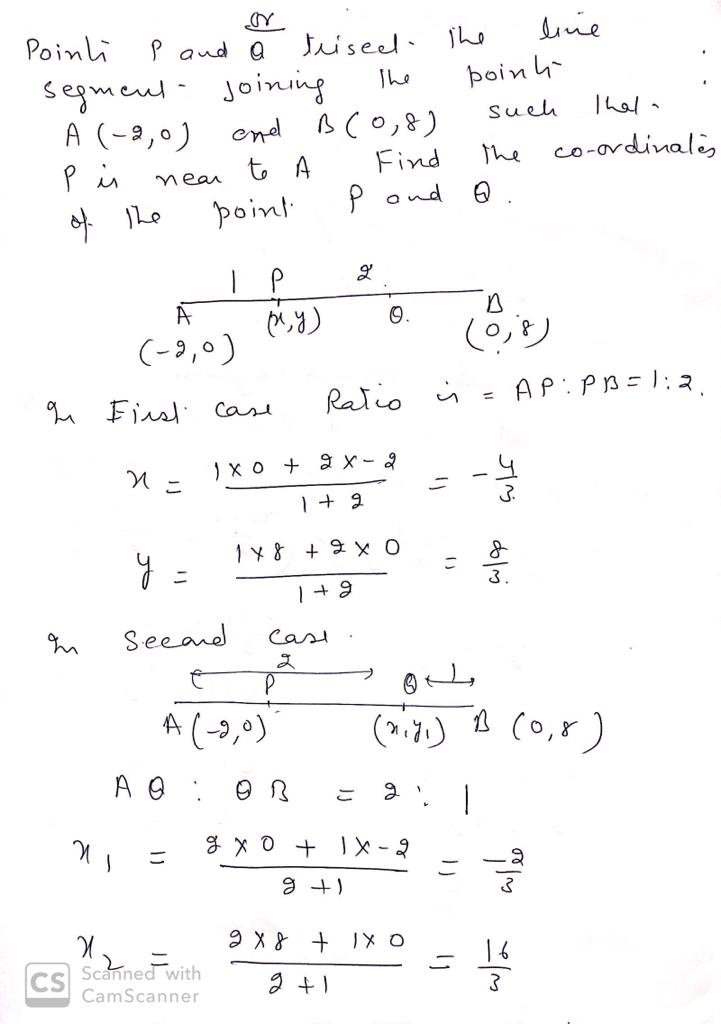 or
Points P and Q trisect the line
segment joining the points
A (-2,0) and B (0,8) such that
P is near to A Find the co-ordinates
of the point P and Q.
1 P 2
A (x,y) Q. B
(-2,0) (0,8)
In First case Ratio is = AP : PB = 1:2.
x = (1×0 + 2×-2)/(1+2) = -4/3.
y = (1×8 + 2×0)/(1+2) = 8/3.
In Second case.
2
P Q 1
A (-2,0) (x,y₁) B (0,8)
AQ : QB = 2 : 1
x₁ = (2×0 + 1×-2)/(2+1) = -2/3
x₂ = (2×8 + 1×0)/(2+1) = 16/3
CS Scanned with
CamScanner